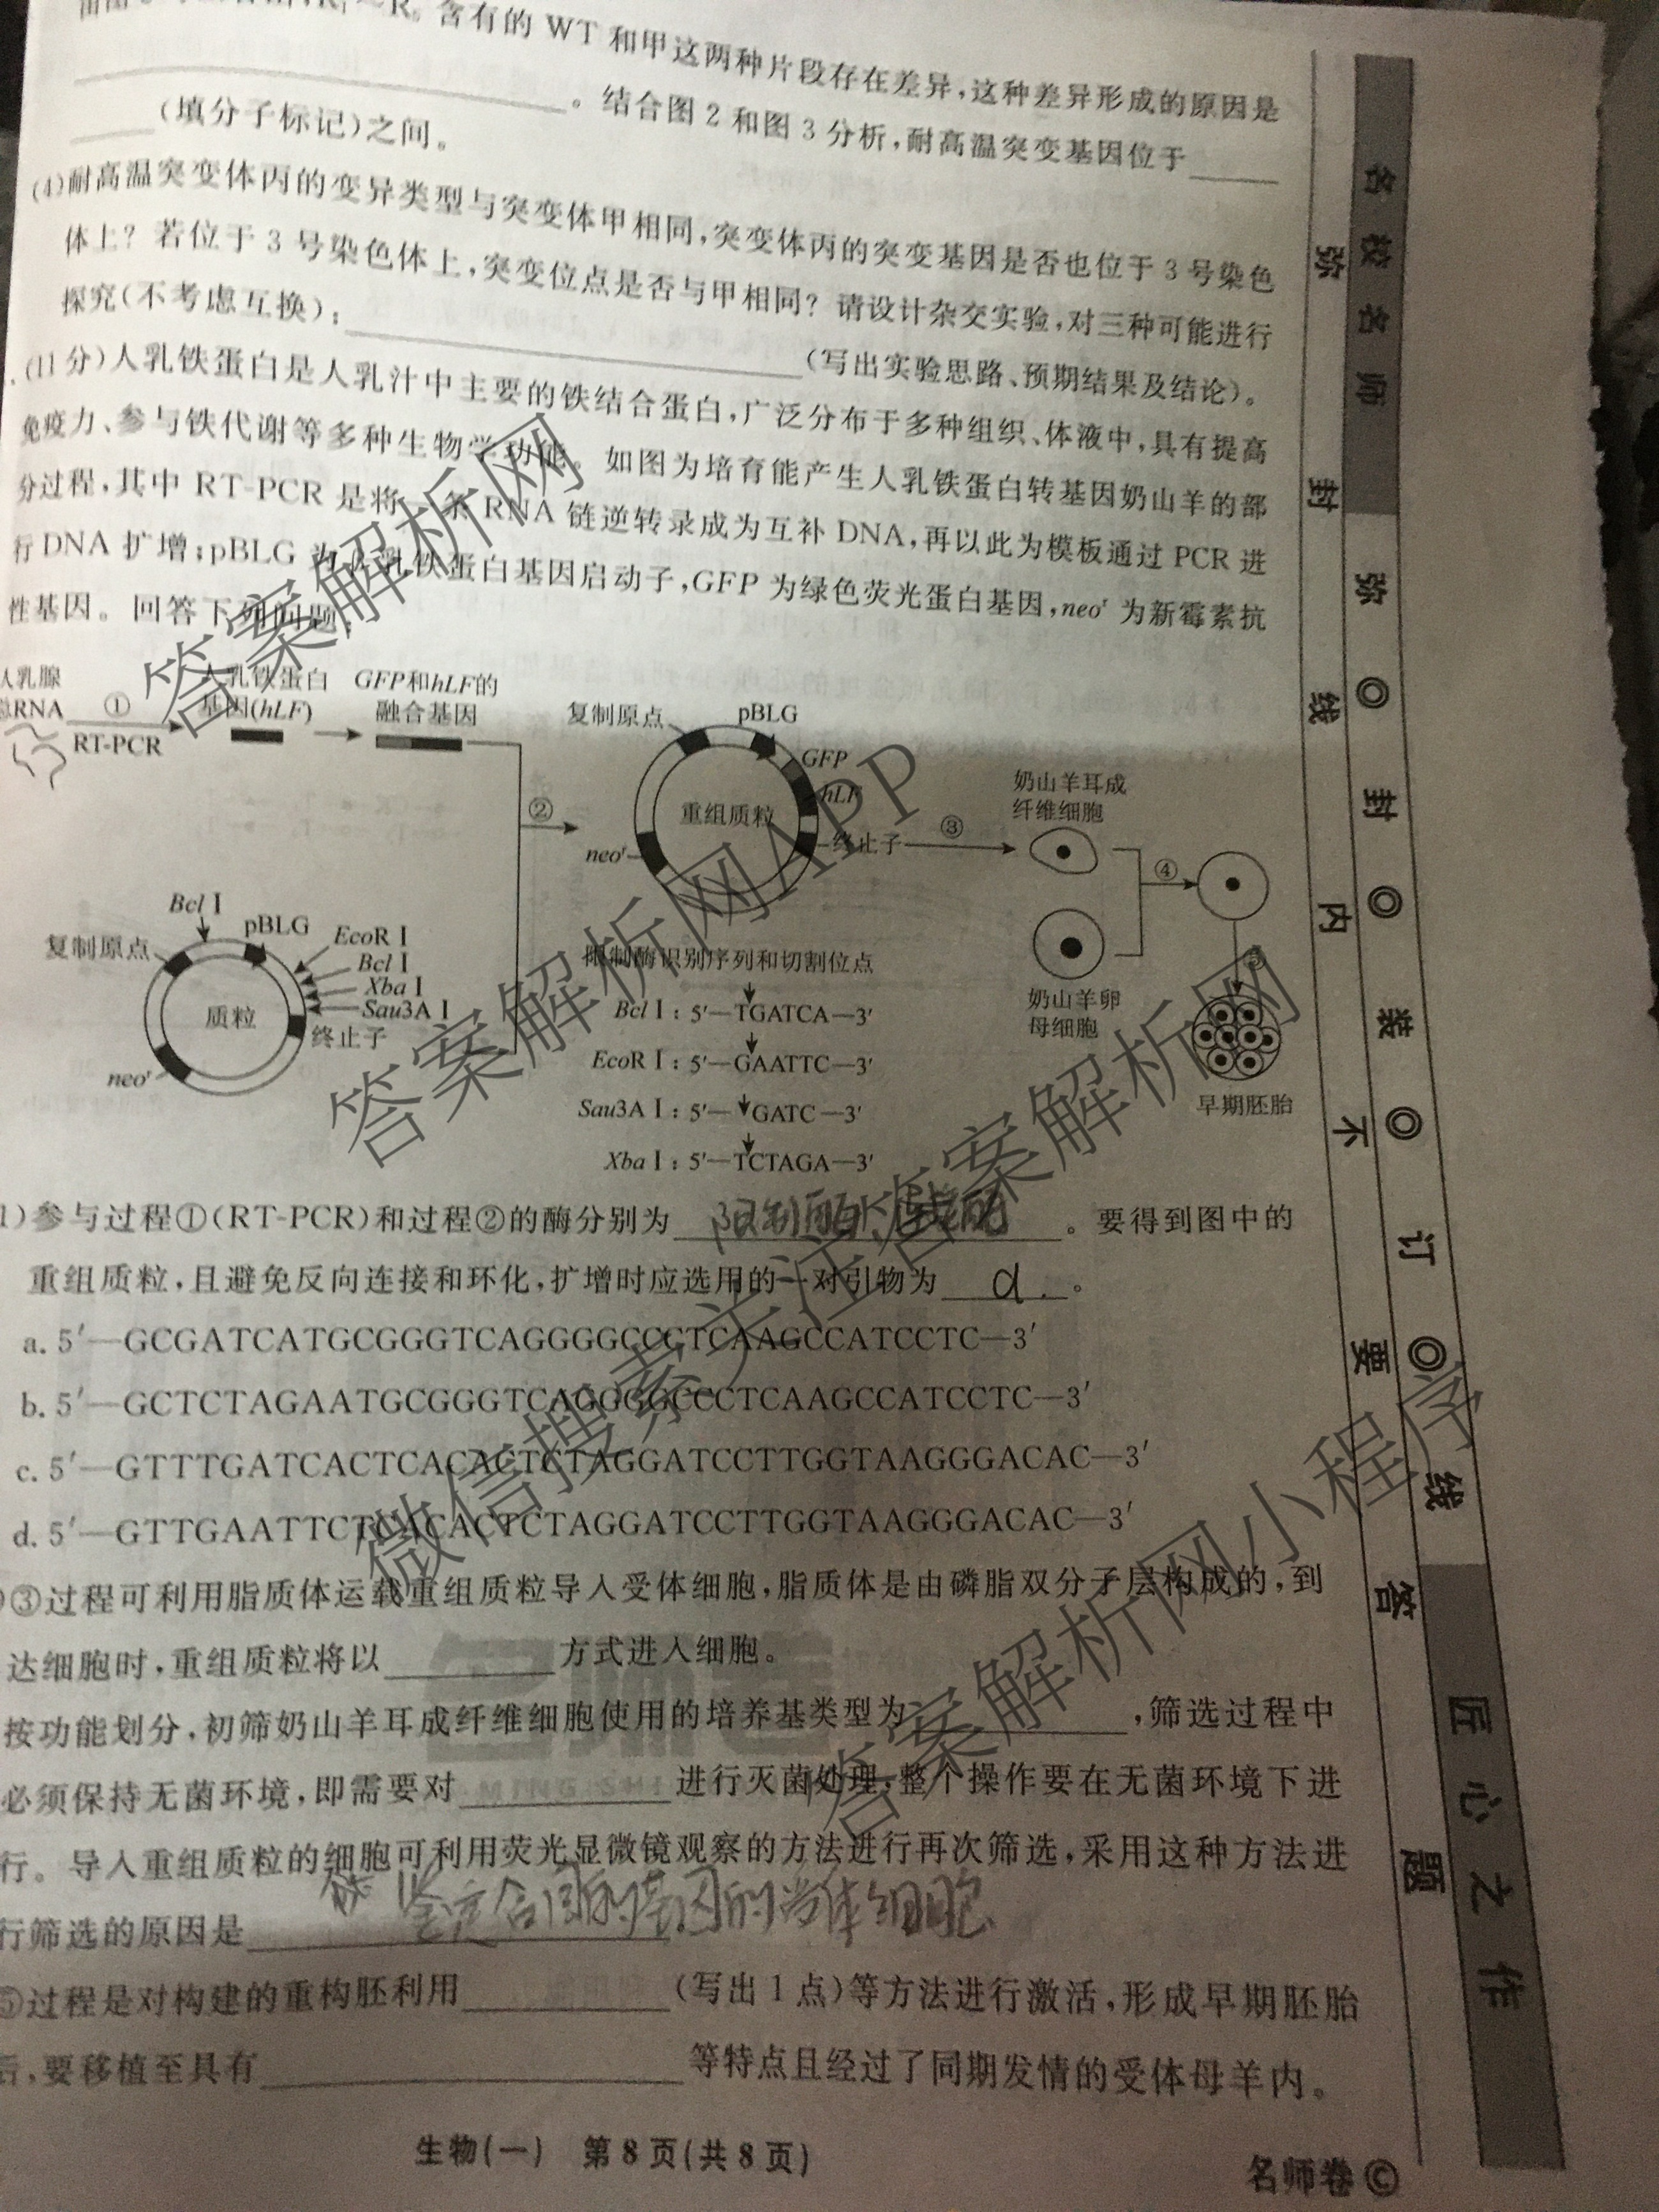 含有的 WT 和甲这两种片段存在差异,这种差异形成的原因是
。结合图 2 和图 3 分析,耐高温突变基因位于
(填分子标记)之间。
(4)耐高温突变体丙的变异类型与突变体甲相同,突变体丙的突变基因是否也位于 3 号染色
体上?若位于 3 号染色体上,突变位点是否与甲相同?请设计杂交实验,对三种可能进行
探究(不考虑互换):(写出实验思路、预期结果及结论)。
.(11 分)人乳铁蛋白是人乳汁中主要的铁结合蛋白,广泛分布于多种组织、体液中,具有提高
免疫力、参与铁代谢等多种生物学功能。如图为培育能产生人乳铁蛋白转基因奶山羊的部
分过程,其中 RT-PCR 是将一条 RNA 链逆转录成为互补 DNA,再以此为模板通过 PCR 进
行 DNA 扩增;pBLG 为人乳铁蛋白基因启动子,GFP 为绿色荧光蛋白基因,neoʳ 为新霉素抗
性基因。回答下列问题:
人乳腺
RNA
①
RT-PCR
人乳铁蛋白
基因(hLF)
GFP和hLF的
融合基因
②
复制原点
pBLG
GFP
hLF
重组质粒
终止子
neoʳ
③
奶山羊耳成
纤维细胞
④
奶山羊卵
母细胞
⑤
早期胚胎
Bcl Ⅰ
pBLG
EcoR Ⅰ
Bcl Ⅰ
Xba Ⅰ
Sau3A Ⅰ
复制原点
质粒
终止子
neoʳ
限制酶识别序列和切割位点
Bcl Ⅰ: 5′—TGATCA—3′
EcoR Ⅰ: 5′—GAATTC—3′
Sau3A Ⅰ: 5′— GATC —3′
Xba Ⅰ: 5′—TCTAGA—3′
1)参与过程①(RT-PCR)和过程②的酶分别为 限制酶 。要得到图中的
重组质粒,且避免反向连接和环化,扩增时应选用的一对引物为 d 。
a. 5′—GCGATCATGCGGGTCAGGGGCCGTCAAGCCATCCTC—3′
b. 5′—GCTCTAGAATGCGGGTCAGGGGCCCTCAAGCCATCCTC—3′
c. 5′—GTTTGATCACTCACACTCTAGGATCCTTGGTAAGGGACAC—3′
d. 5′—GTTGAATTCTCACACTCTAGGATCCTTGGTAAGGGACAC—3′
)③过程可利用脂质体运载重组质粒导入受体细胞,脂质体是由磷脂双分子层构成的,到
达细胞时,重组质粒将以方式进入细胞。
按功能划分,初筛奶山羊耳成纤维细胞使用的培养基类型为,筛选过程中
必须保持无菌环境,即需要对进行灭菌处理,整个操作要在无菌环境下进
行。导入重组质粒的细胞可利用荧光显微镜观察的方法进行再次筛选,采用这种方法进
行筛选的原因是 鉴定含目的基因的受体细胞
⑤过程是对构建的重构胚利用(写出 1 点)等方法进行激活,形成早期胚胎
后,要移植至具有等特点且经过了同期发情的受体母羊内。
生物(一) 第 8 页(共 8 页)
名师卷 ©
名校名师
弥 封 装 订 线
匠心之作
弥 封 线 内 不 要 答 题
答案解析网
答案解析网APP
微信搜索关注答案解析网
答案解析网小程序